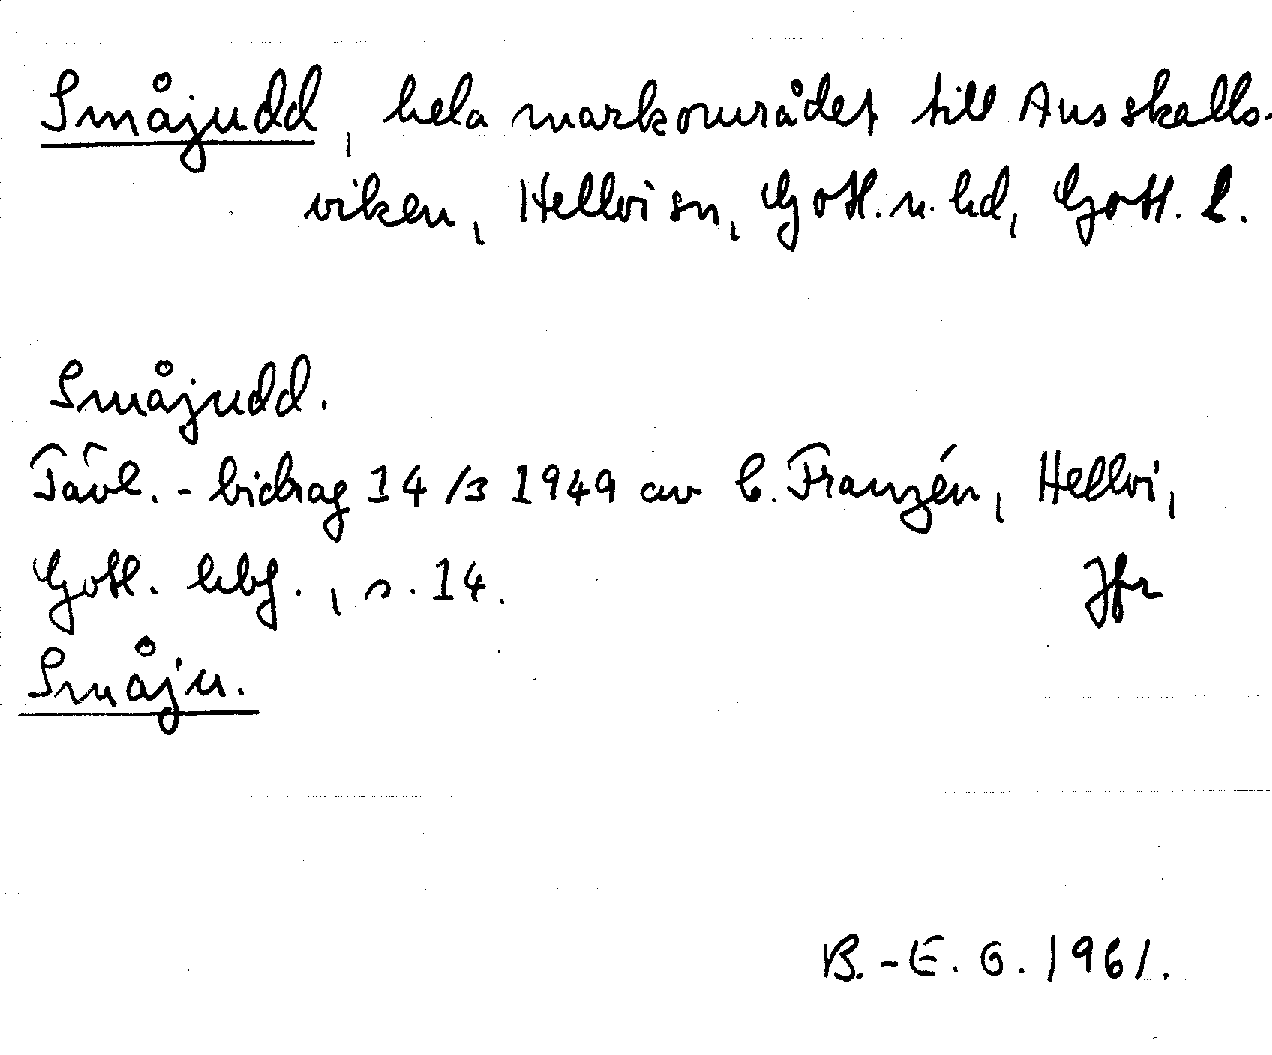 Småjudd, hela markområdet till Ausskalls-
viken, Hellvi sn, Gotl. n. hd, Gotl. l.
Småjudd.
Tävl.-bidrag 14/3 1949 av C. Franzén, Hellvi,
Gotl. hbf., s. 14. Jfr
Småju.
B.-E. G. 1961.